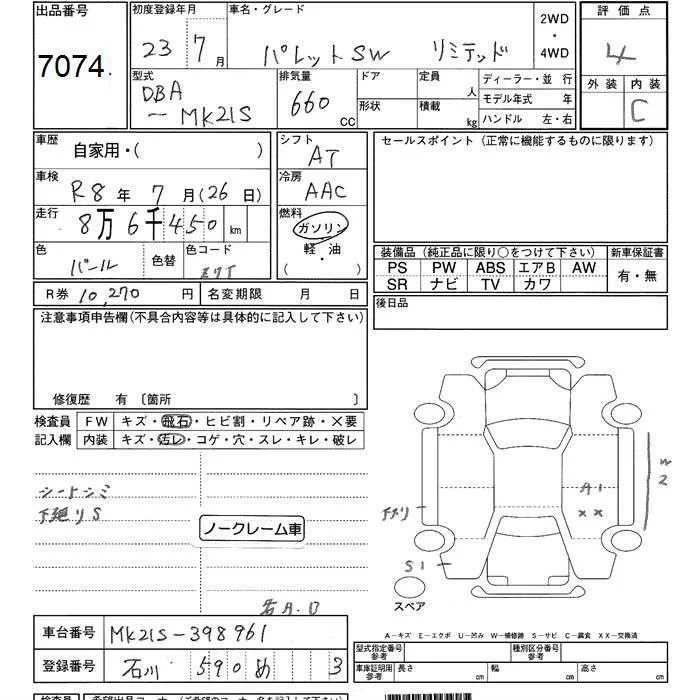 出品番号 初度登録年月 車名・グレード 2WD・4WD 評価点
7074. 23年7月 パレットSW リミテッド 4
型式 排気量 ドア 定員 人 ディーラー・並行 外装 内装
DBA 660cc 形状 積載 kg モデル年式 年 C
－MK21S ハンドル 左・右
車歴 自家用・( ) シフト AT セールスポイント(正常に機能するものに限ります)
車検 R8年7月(26日) 冷房 AAC
走行 8万6千450km 燃料 ガソリン
色 パール 色替 色コード Z7T 軽・油 ( )
装備品(純正品に限り○をつけて下さい) 新車保証書
PS PW ABS エアB AW 有・無
SR ナビ TV カワ
R券 10,270円 名変期限 月 日 後日品
注意事項申告欄(不具合内容等は具体的に記入して下さい)
修復歴 有〔箇所 〕
検査員 FW キズ・飛石・ヒビ割・リペア跡・×要
記入欄 内装 キズ・汚レ・コゲ・穴・スレ・キレ・破レ
シートシミ
下廻りS
ノークレーム車
W2
A1
××
S1
スペア
A－キズ E－エクボ U－凹み W－補修跡 S－サビ C－腐食 XX－交換済
車台番号 MK21S-398961
型式指定番号 参考 種別区分番号 参考
登録番号 石川 590 め 3
車庫証明用 参考 長さ cm 幅 cm 高さ cm